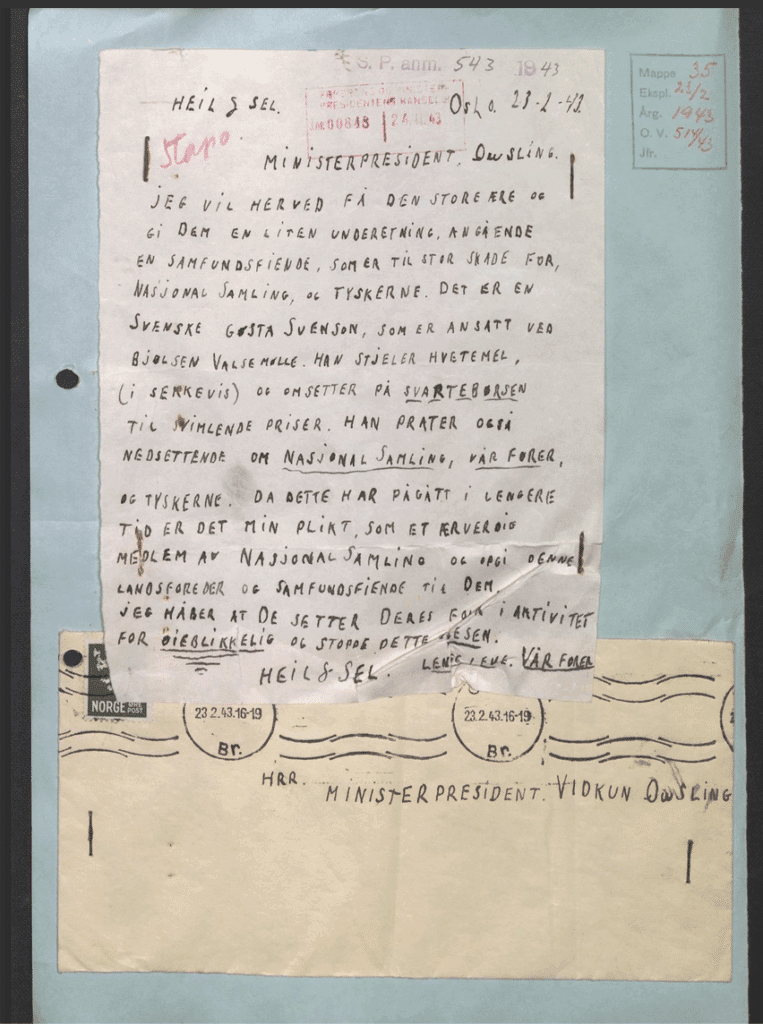 S. P. anm. 543 1943
Mappe 35
Ekspl. 23/2
Årg. 1943
O. V. 514/43
Jfr.
HEIL & SEL.
PRESIDENTENS KANSELLI
00848 24.II.43
OSLO. 23-2-43.
Stapo
MINISTERPRESIDENT, QWSLING.
JEG VIL HERVED FÅ DEN STORE ÆRE OG
GI DEM EN LITEN UNDERETNING, ANGÅENDE
EN SAMFUNDSFIENDE, SOM ER TIL STOR SKADE FOR,
NASJONAL SAMLING, OG TYSKERNE. DET ER EN
SVENSKE GØSTA SVENSON, SOM ER ANSATT VED
BJØLSEN VALSEMØLLE. HAN STJELER HVETEMEL,
(I SEKKEVIS) OG OMSETTER PÅ SVARTEBØRSEN
TIL SVIMLENDE PRISER. HAN PRATER OGSÅ
NEDSETTENDE OM NASJONAL SAMLING, VÅR FØRER,
OG TYSKERNE. DA DETTE HAR PÅGÅTT I LENGERE
TID ER DET MIN PLIKT, SOM ET ÆRVERDIG
MEDLEM AV NASJONAL SAMLING OG OPGI DENNE
LANDSFOREDER OG SAMFUNDSFIENDE TIL DEM.
JEG HÅBER AT DE SETTER DERES FOLK I AKTIVITET
FOR ØIEBLIKKELIG OG STOPPE DETTE
HEIL & SEL. LENGE LEVE. VÅR FØRER
NORGE
POST
23.2.43.16-19
Br.
23.2.43.16-19
Br.
HRR.
MINISTERPRESIDENT. VIDKUN QWSLING